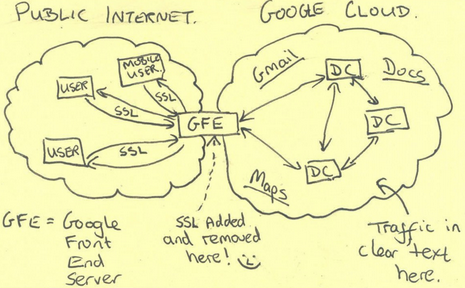 PUBLIC INTERNET.
GOOGLE CLOUD.
MOBILE
USER.
USER
SSL
SSL
Gmail
DC
Docs
GFE
DC
USER
SSL
Maps
DC
GFE = Google
Front
End
Server
SSL Added
and removed
here!
Traffic in
clear text
here.